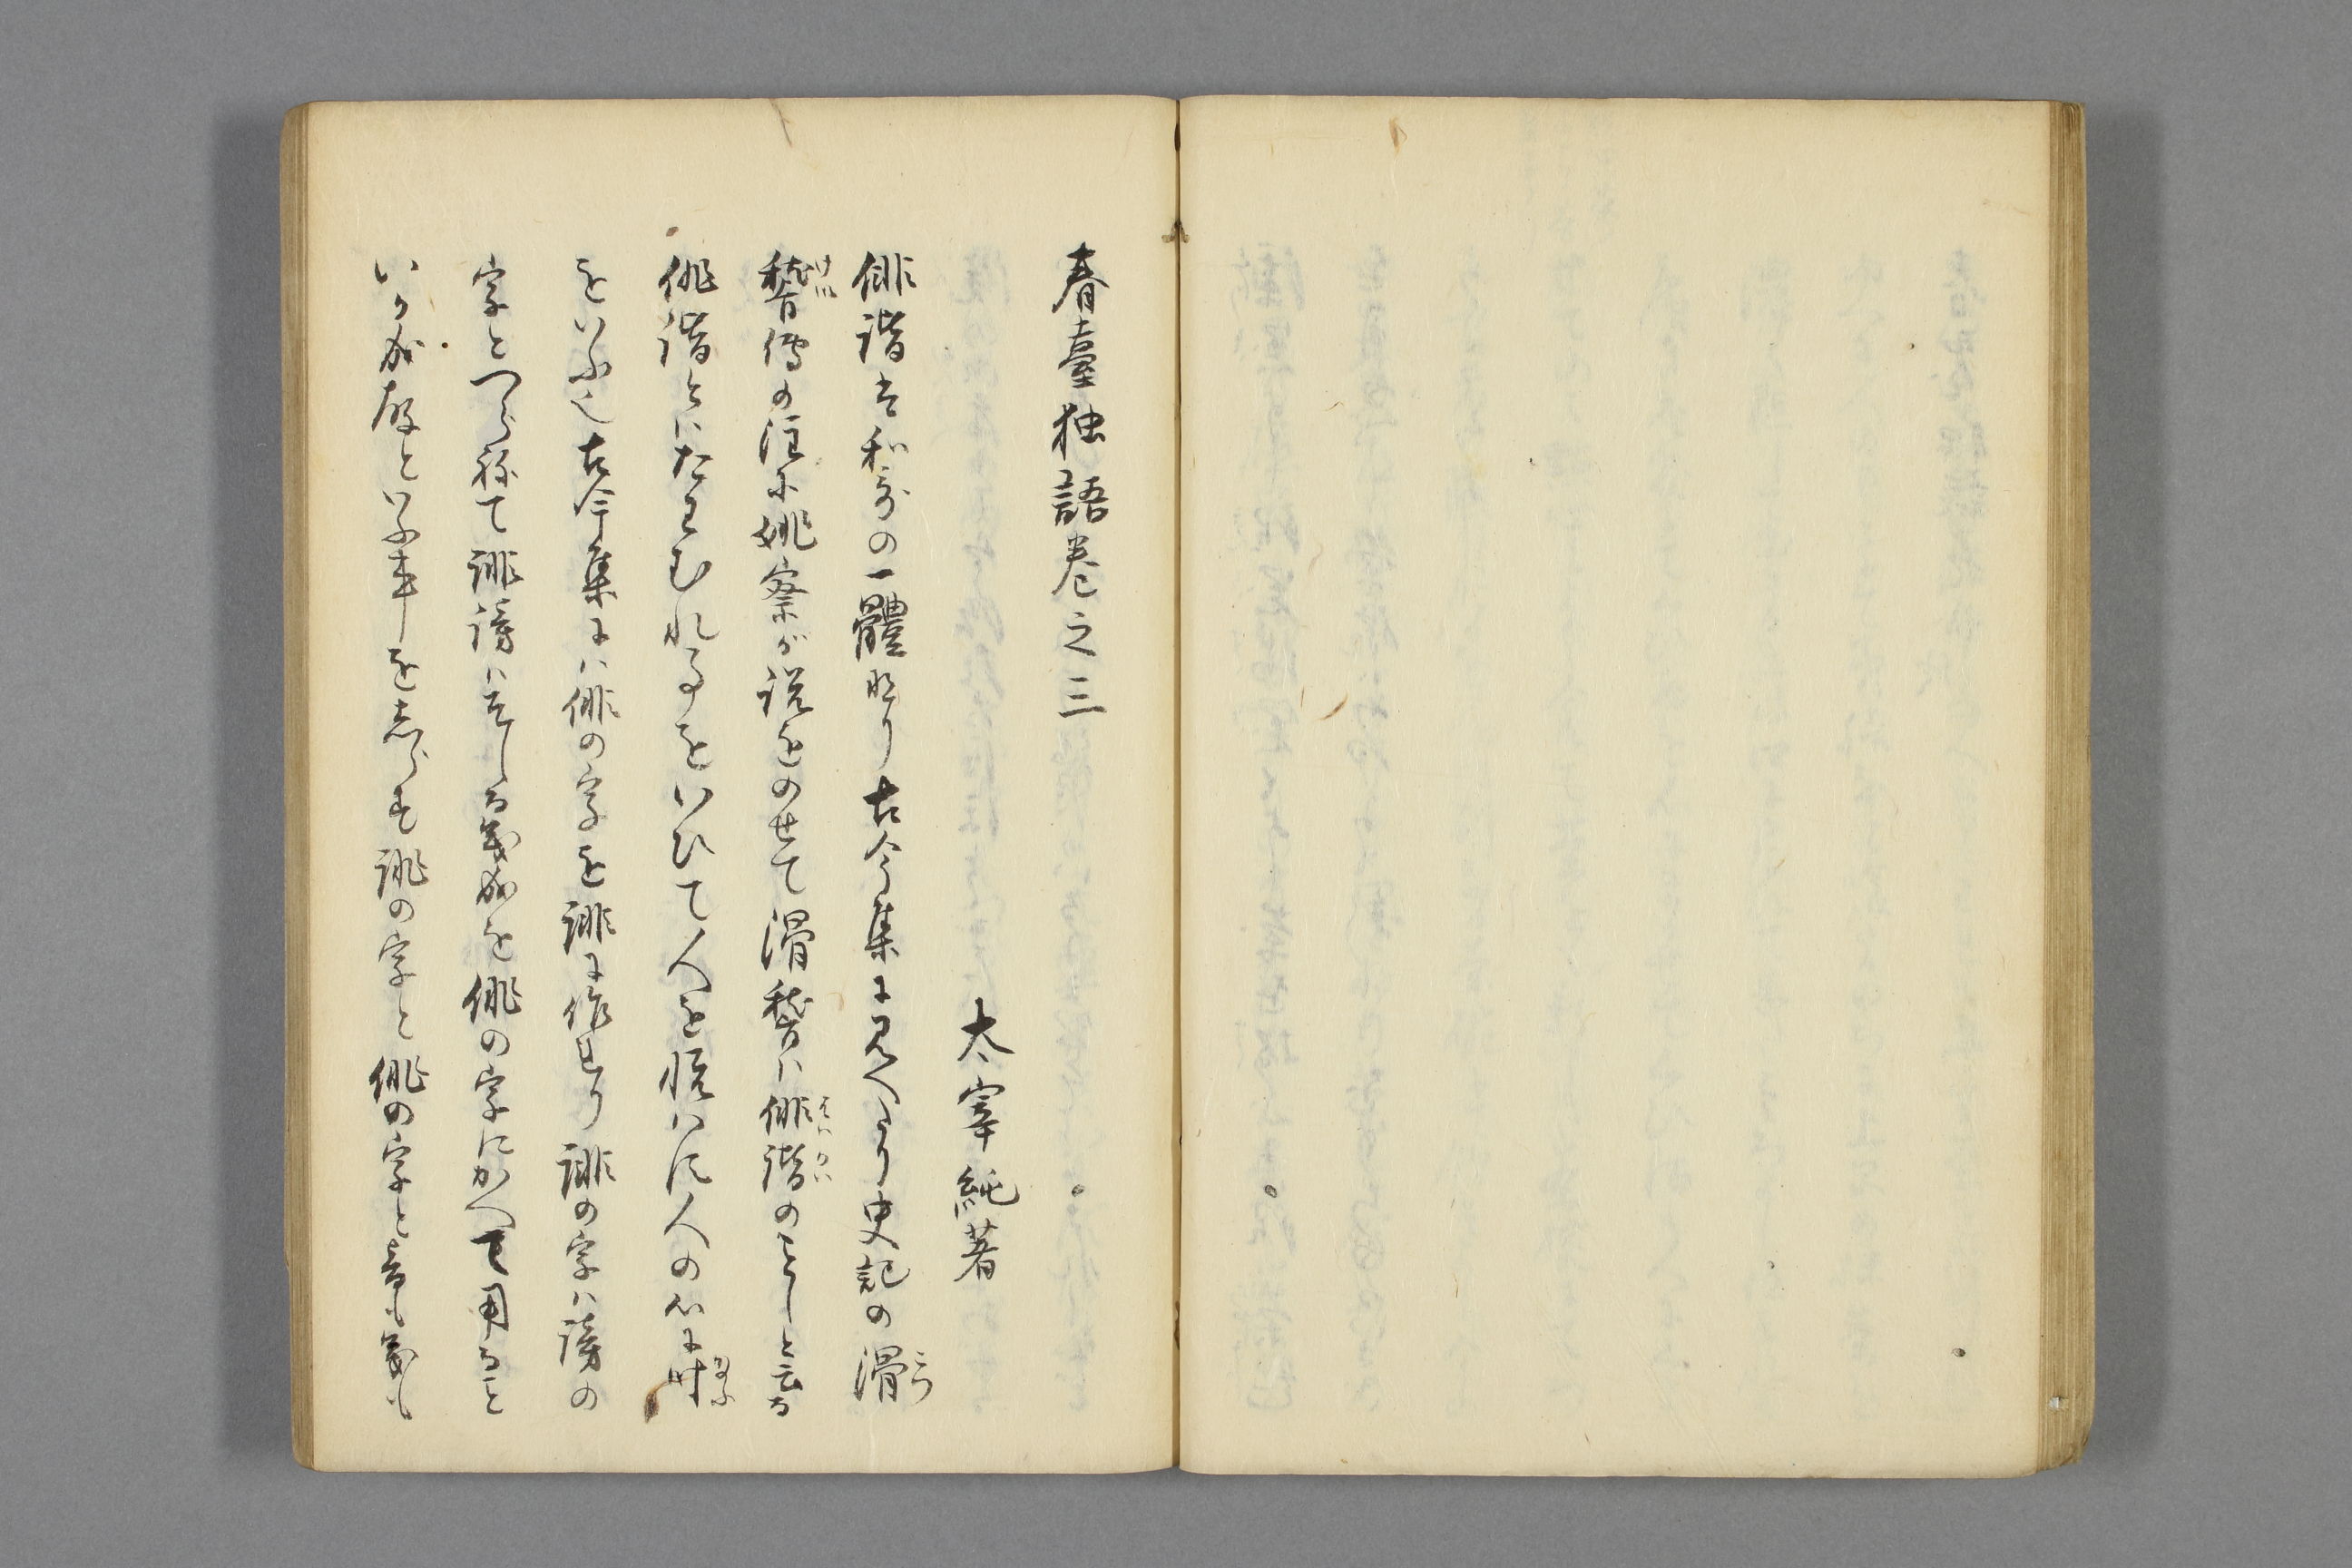 春臺独語巻之三
太宰純著
俳諧は和哥の一體なり古今集に見へたり史記の滑
稽傳の注に姚察が説をのせて滑稽ハ俳諧のことしと云る
俳諧とハたはむれ事をいひて人を悦ハし人の心に叶
をいふ也古今集にハ俳の字を誹に作れり誹の字ハ謗の
字とつらねて誹謗ハそしる義なるを俳の字にかへて用ること
いかなる故といふ事をしらす誹の字と俳の字と音も義も